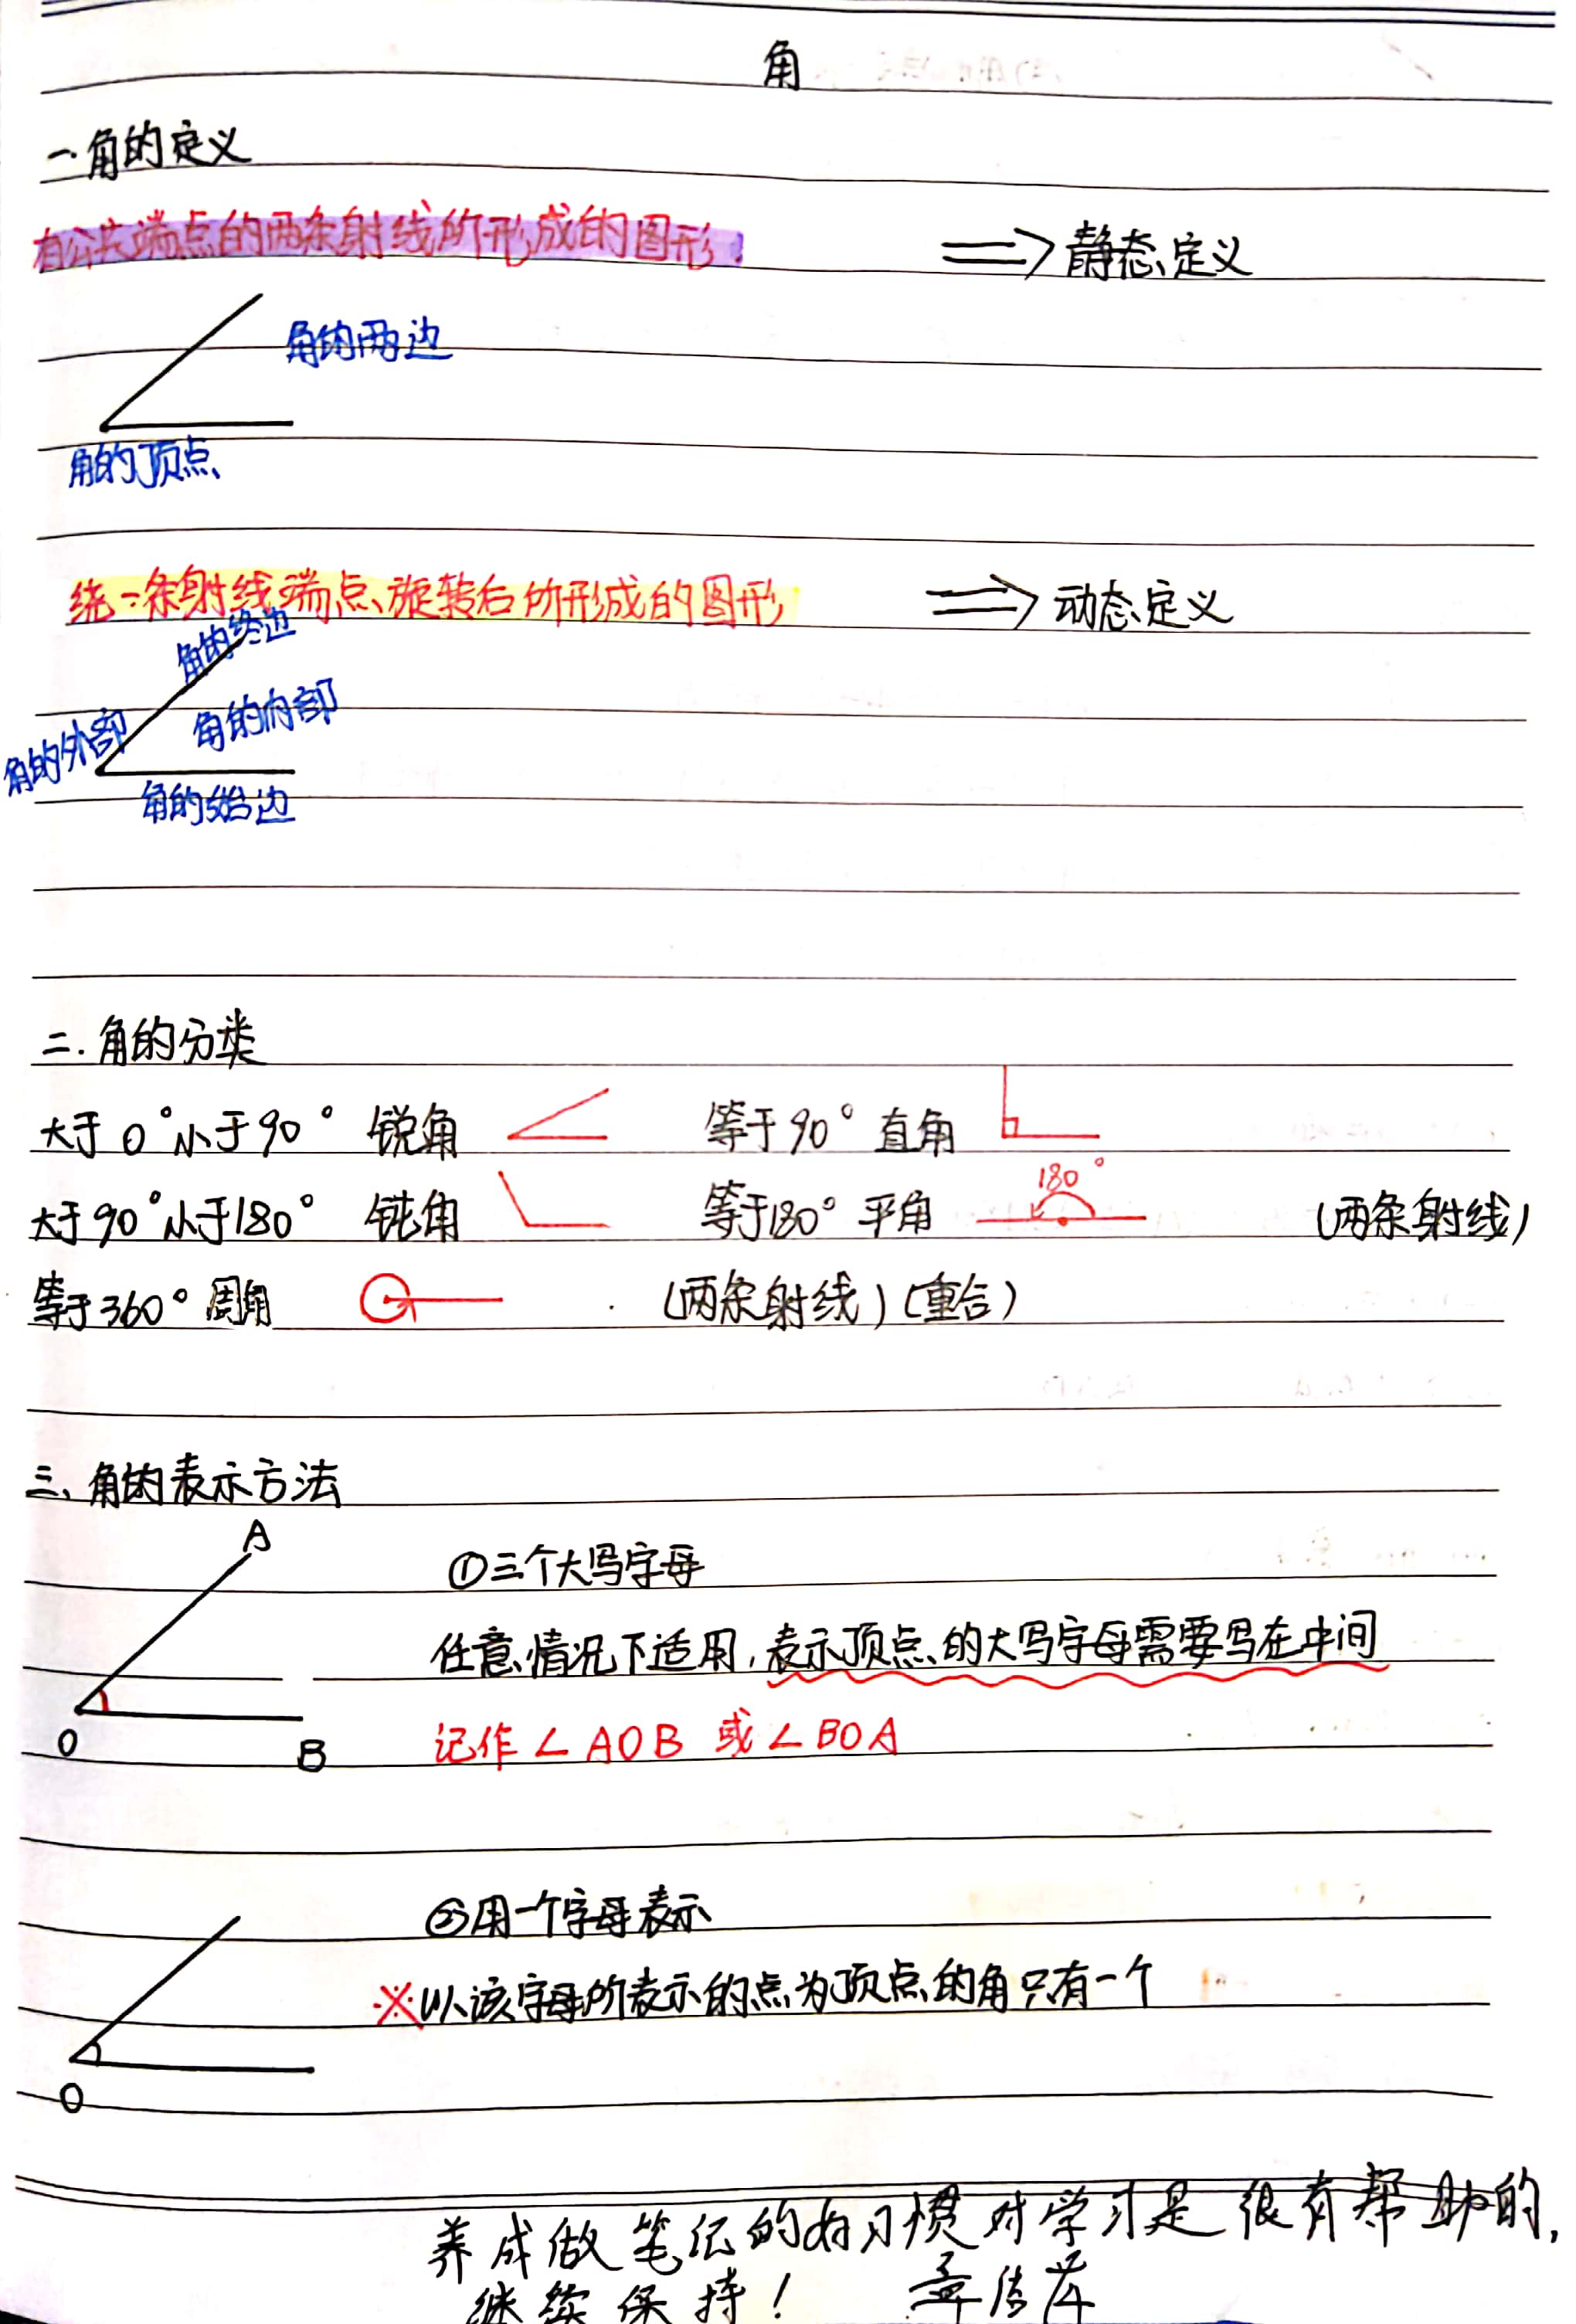 角
一.角的定义
有公共端点的两条射线所形成的图形. ⟹ 静态定义
角的两边
角的顶点
绕一条射线端点旋转后所形成的图形 ⟹ 动态定义
角的终边
角的内部
角的外部
角的始边
二.角的分类
大于0°小于90° 锐角 等于90° 直角
大于90°小于180° 钝角 等于180° 平角 180° (两条射线)
等于360° 周角 (两条射线)(重合)
三、角的表示方法
A
①三个大写字母
任意情况下适用,表示顶点的大写字母需要写在中间
O B 记作∠AOB 或∠BOA
②用一个字母表示
※以该字母所表示的点为顶点的角只有一个
O
养成做笔记的好习惯对学习是很有帮助的,
继续保持!